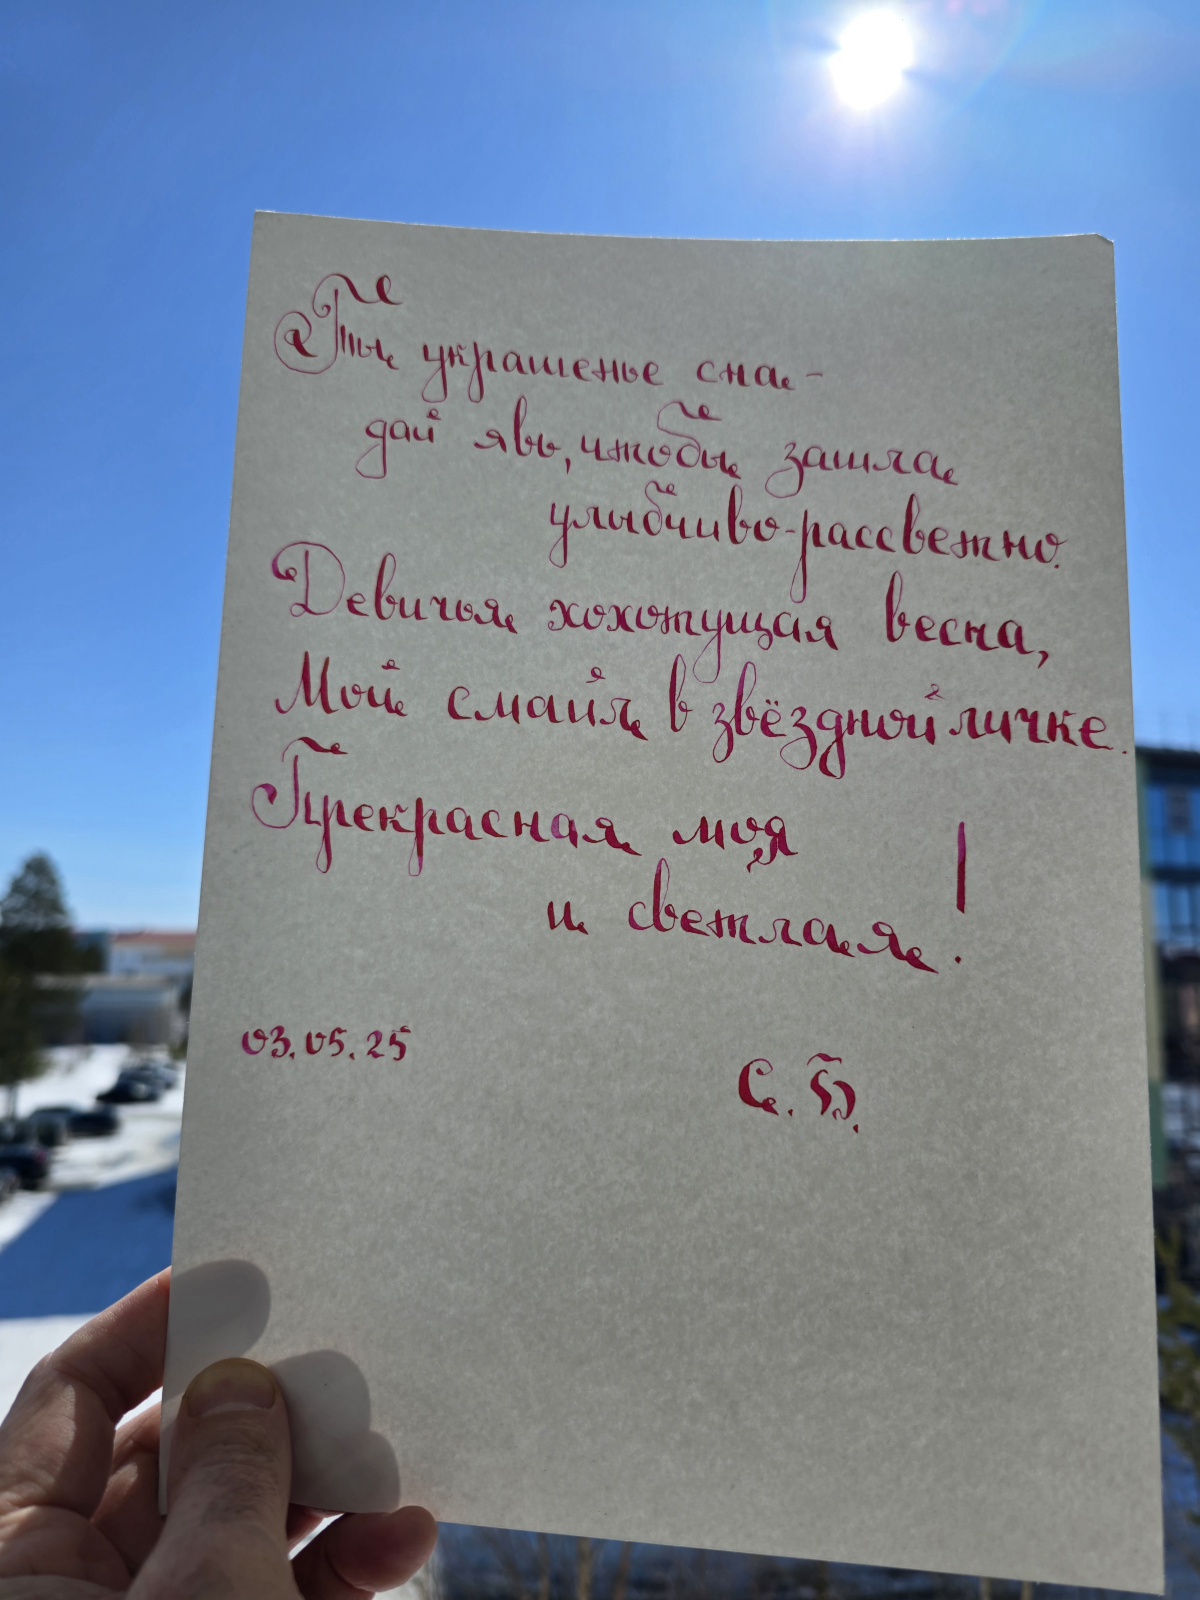 Ты украшенье сна -
дай явь, чтобы зашла
улыбчиво-рассветно.
Девичья хохотущая весна,
Мой смайл в звёздной личке.
Прекрасная моя
и светлая!
03.05.25
С. Б.